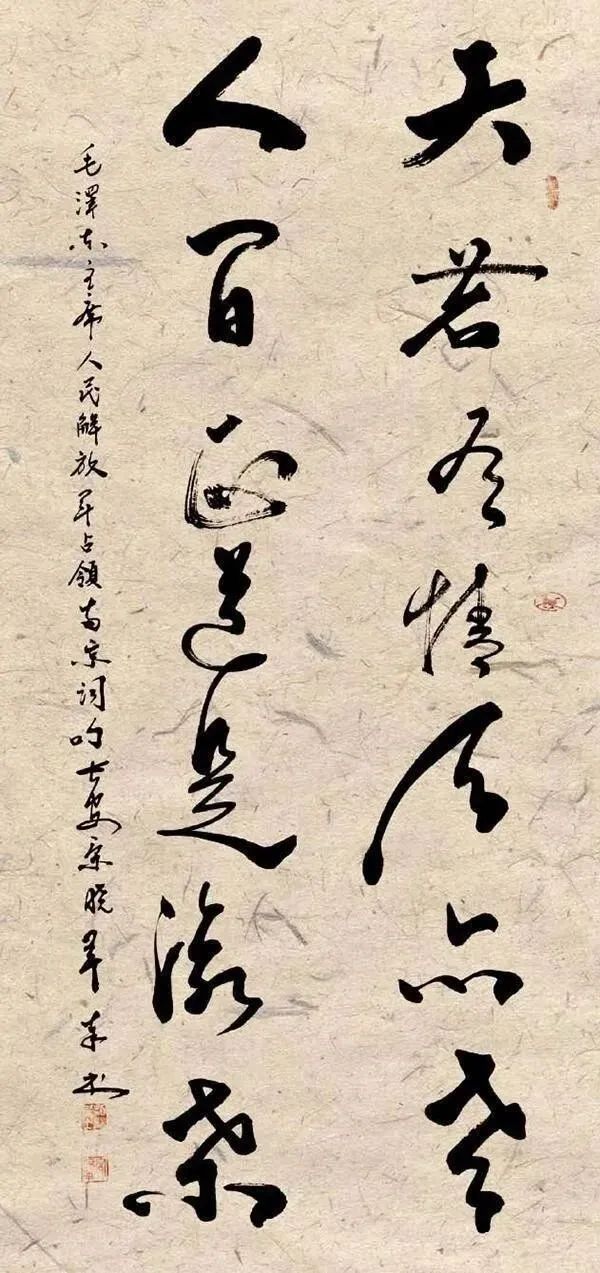 天若有情天亦老
人间正道是沧桑
毛泽东主席人民解放军占领南京词句 安京晓军书